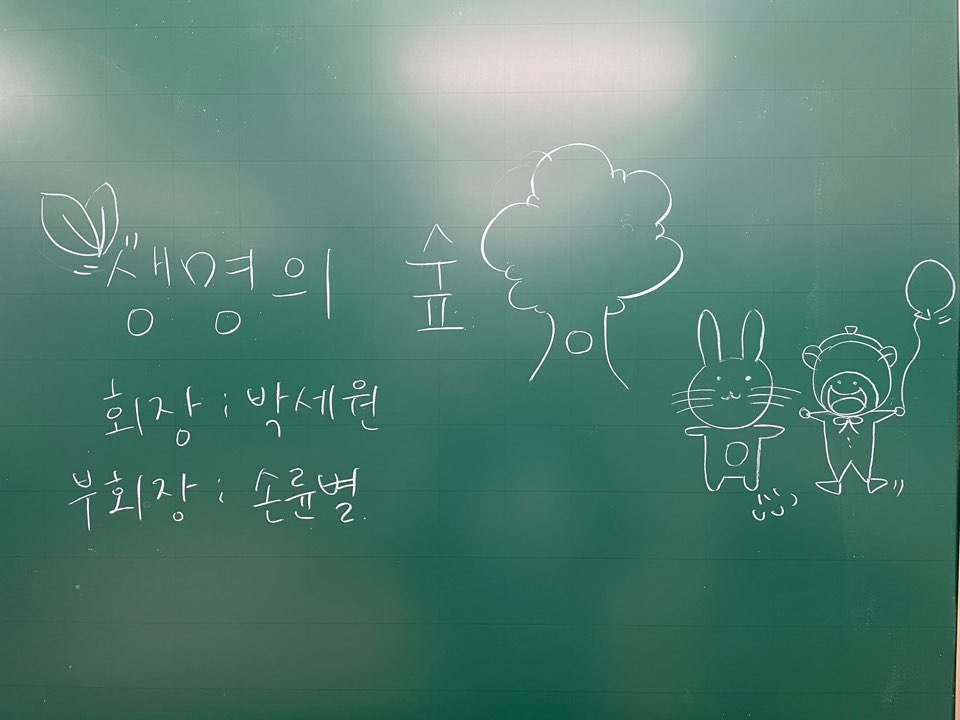 생명의 숲
회장 : 박세원
부회장 : 손륜별